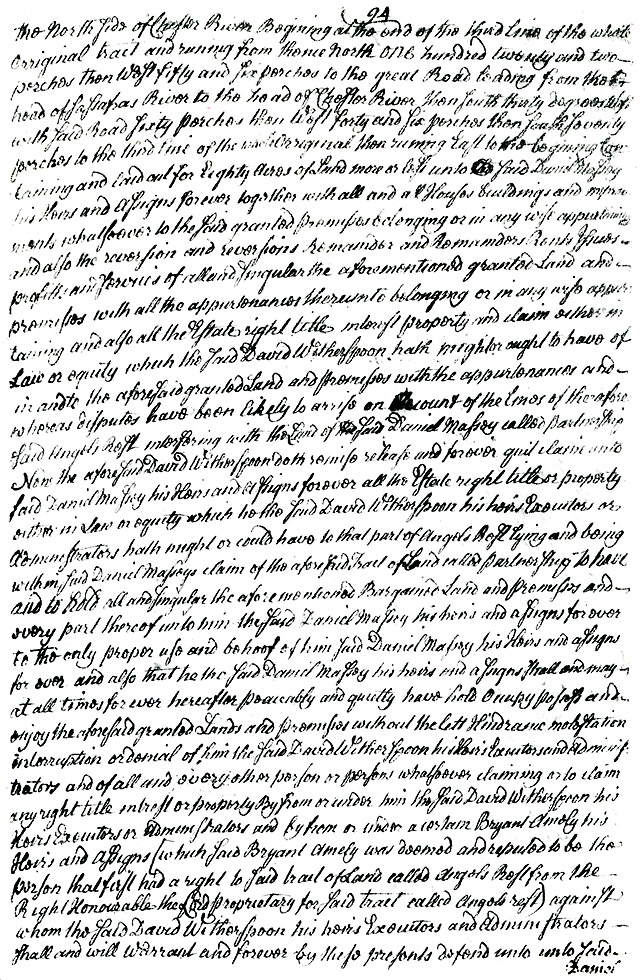 94
the North side of Chester River Begining at the end of the third Line of the whole
origginal tract and runing from thence North one hundred twenty and two
perches then West fifty and six perches to the great Road leading from the
head of Sassafras River to the head of Chester River then South thirty degrees West
with said Road sixty perches then West forty and six perches then South seventy
perches to the third line of the whole origginal then runing East to the begining Con
taining and laid out for Eighty Acres of Land more or less unto the said David Massey
his Heirs and assigns forever together with all and all Houses buildings and improve
ments whatsoever to the said granted premises belonging or in any wise appurtaining
and also the reversion and reversions Remainder and Remainders Rents Issues
profitts and services of all and singular the aforementioned granted Land and
premisses with all the appurtenances thereunto belonging or in any wise appur
taining and also all the Estate right title interest property and claim either in
Law or equity which the said David Witherspoon hath might or ought to have of
in and to the aforesaid granted Land and premisses with the appurtenances and
whereas disputes have been likely to arrise on account of the lines of the afore
said Angels Rest interfering with the Land of the said Daniel Massey called partnership
Now the aforesaid David Witherspoon doth remise release and forever quit claim unto
said Daniel Massey his Heirs and assigns forever all the Estate right title or property
either in Law or equity which he the said David Witherspoon his heirs Executors or
Administrators hath might or could have to that part of Angels Rest Lying and being
within said Daniel Masseys claim of the aforesaid tract of Land called partnership to have
and to hold all and singular the aforementioned Bargained Land and premises and
every part thereof unto him the said Daniel Massey his heirs and assigns for ever
to the only proper use and behoof of him said Daniel Massey his Heirs and assigns
for ever and also that he the said Daniel Massey his heirs and assigns shall and may
at all times for ever hereafter peaceably and quietly have hold occupy possess and
enjoy the aforesaid granted Lands and premises without the lett Hindrance molestation
interruption or denial of him the said David Witherspoon his Heirs Executors and Adminis
trators and of all and every other person or persons whatsoever claiming or to claim
any right title intrest or property By from or under him the said David Witherspoon his
Heirs Executors or Administrators and by from or under a certain Bryant Amely his
Heirs and assigns [which said Bryant Amely was deemed and reputed to be the
person that first had a right to said trait of Land called Angels Rest from the
Right Honourable the Lord proprietary for said trait called Angels rest) against
whom the said David Witherspoon his heirs Executors and Administrators
shall and will warrant and forever by these presents defend unto unto said
Daniel